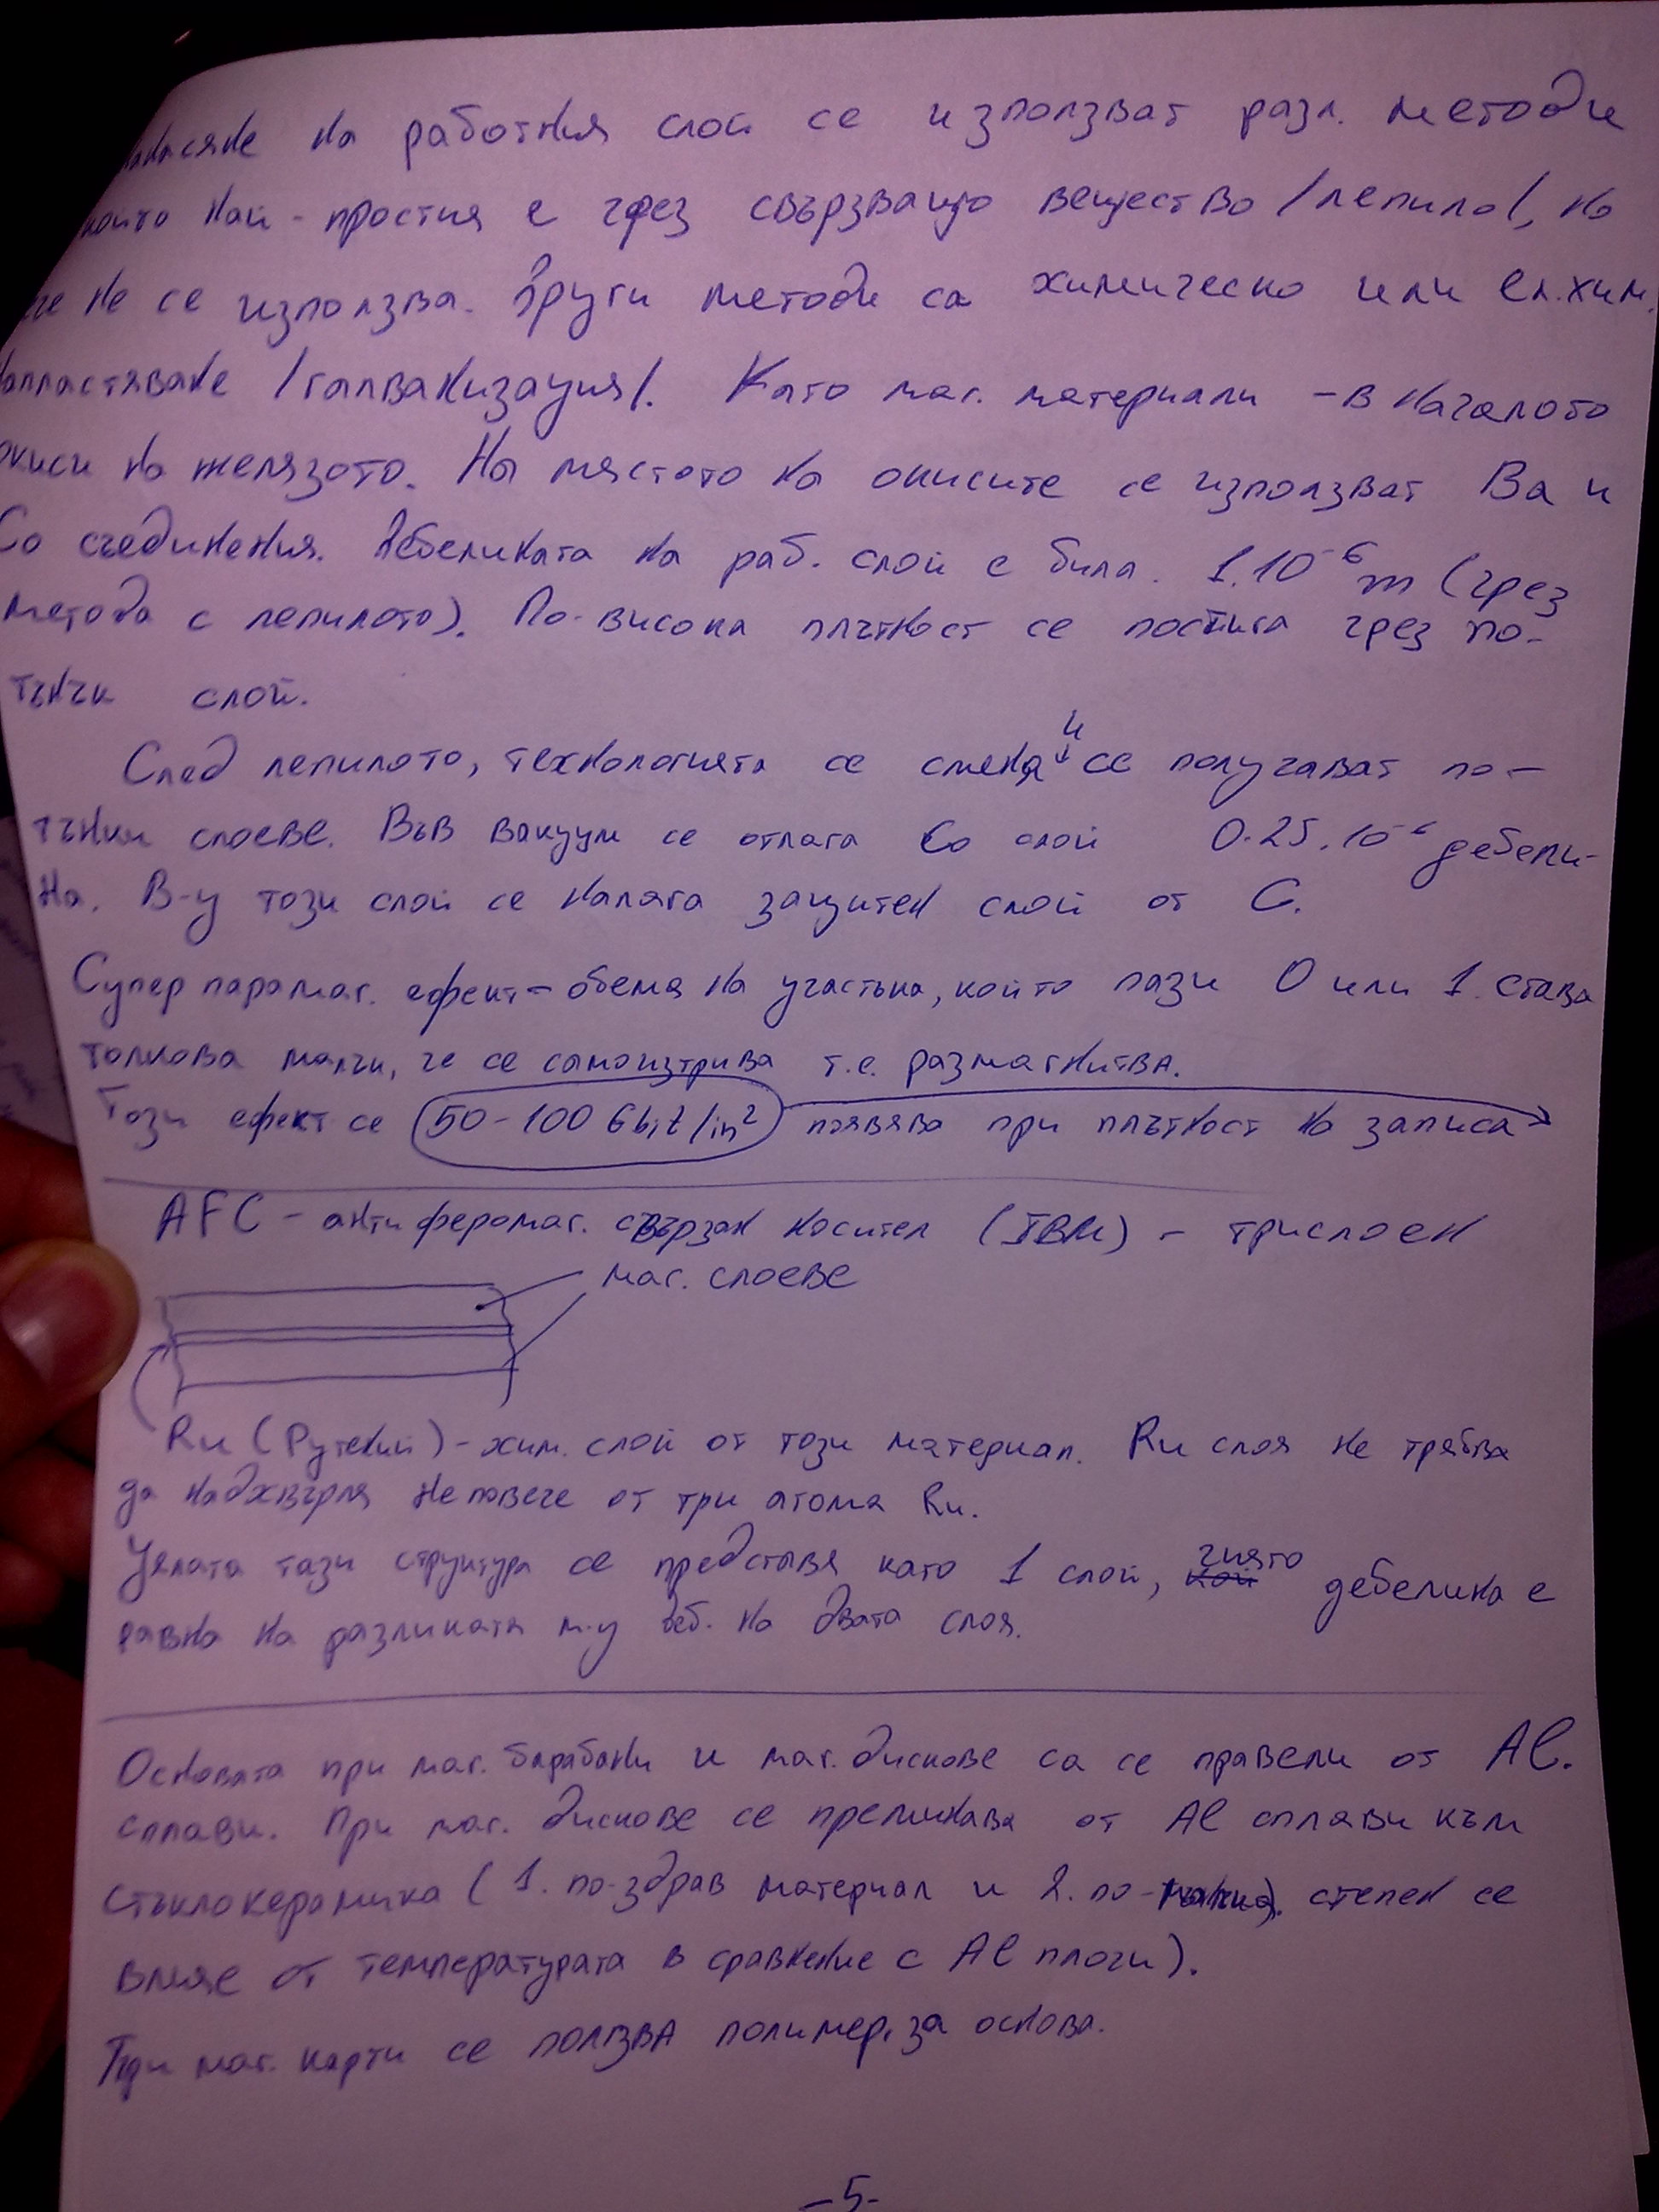 на работния слой се използват разл. методи
най-простия е чрез свързващо вещество /лепило/, но
че не се използва. Други методи са химическо или ел.хим.
напластяване /галванизация/. Като маг. материали - в началото
окиси на желязото. На мястото на окисите се използват Ba и
Co съединения. Дебелината на раб. слой е била. 1.10⁻⁶ m (чрез
метода с лепилото). По-висока плътност се постига чрез по-
тънък слой.
След лепилото, технологията се сменя и се получават по-
тънки слоеве. Във вакуум се отлага Co слой 0.25.10⁻⁶ дебели-
на. В-у този слой се налага защитен слой от C.
Супер парамаг. ефект - обема на участъка, който пази 0 или 1 става
толкова малък, че се самоизтрива т.е. размагнитва.
Този ефект се 50-100 Gbit/in² появява при плътност на записа
AFC - анти феромаг. свързан носител (IBM) - трислоен
маг. слоеве
Ru (Рутений) - хим. слой от този материал. Ru слоя не трябва
да надхвърля не повече от три атома Ru.
Цялата тази структура се представя като 1 слой, чиято дебелина е
равна на разликата м-у деб. на двата слоя.
Основата при маг. барабани и маг. дискове са се правели от Al.
сплави. При маг. дискове се преминава от Al сплави към
стъклокерамика (1. по-здрав материал и 2. по- степен се
влияе от температурата в сравнение с Al плочи).
При маг. карти се ползва полимер. за основа.
-5-